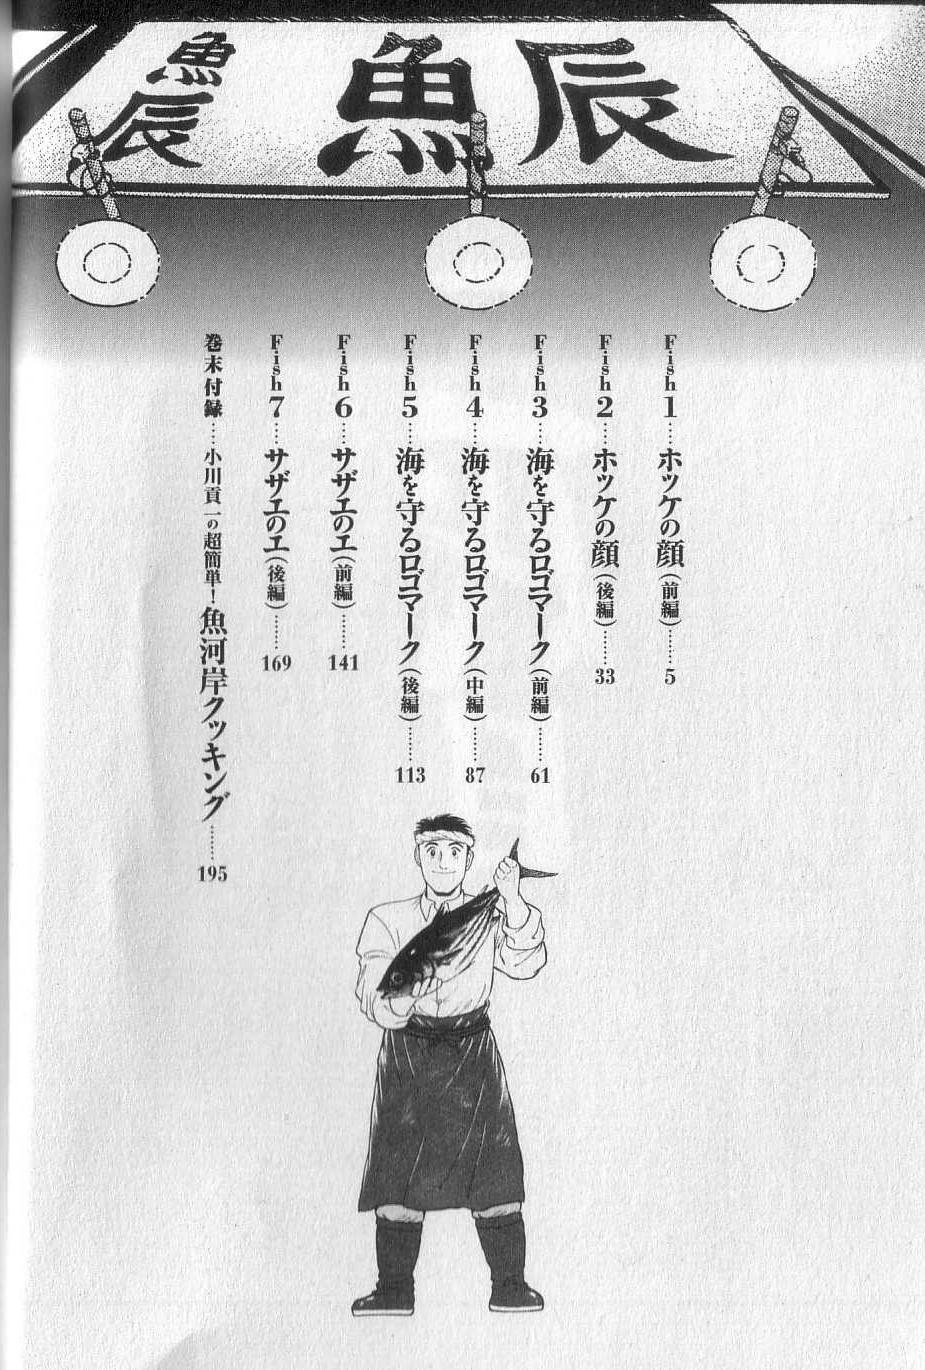 魚辰
魚辰
Fish1……ホッケの顔(前編)……5
Fish2……ホッケの顔(後編)……33
Fish3……海を守るロゴマーク(前編)……61
Fish4……海を守るロゴマーク(中編)……87
Fish5……海を守るロゴマーク(後編)……113
Fish6……サザエのエ(前編)……141
Fish7……サザエのエ(後編)……169
巻末付録……小川貢一の超簡単!魚河岸クッキング……195